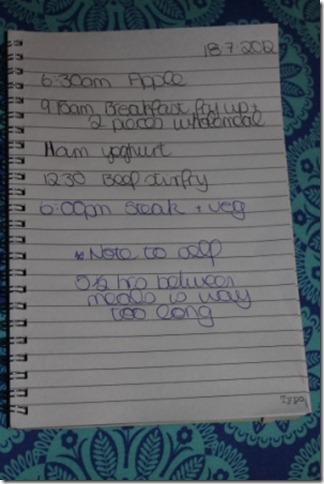 18.7.2012
6:30am Apple
9.15am Breakfast fry up +
2 pieces wholemeal
11am yoghurt
12.30 Beef stirfry
6:00pm Steak + veg
* Note to self
5½ hrs between
meals is way
too long